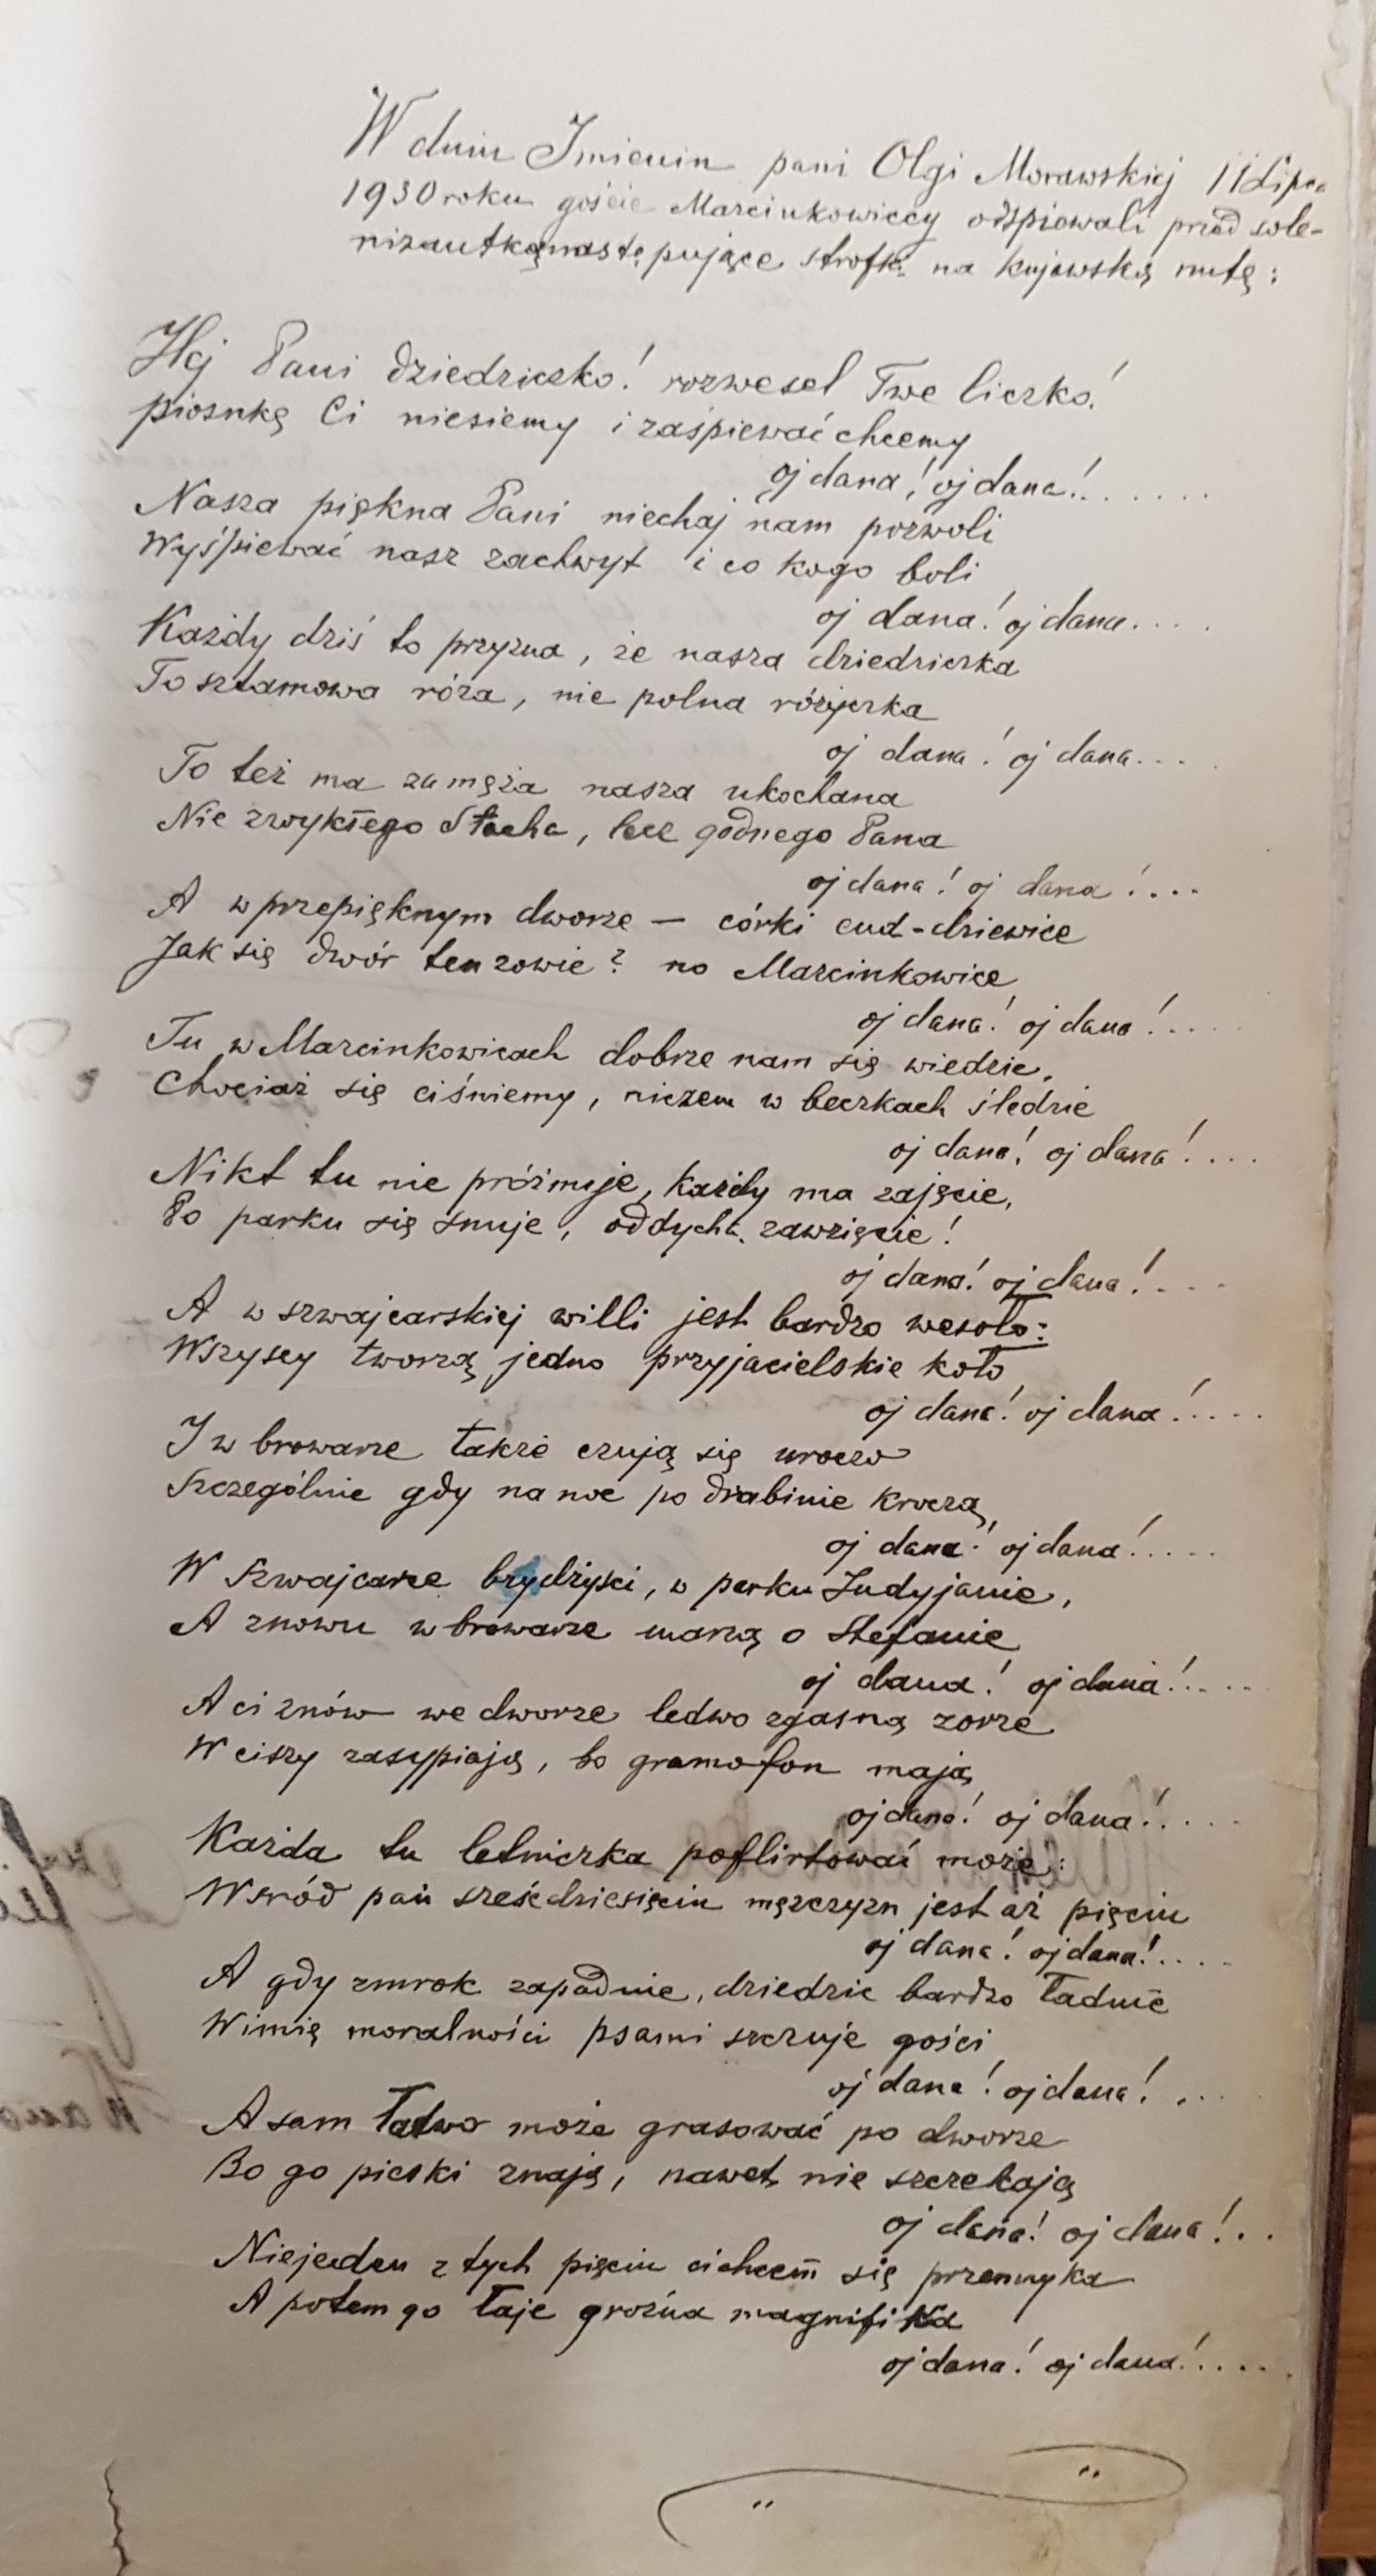 W dniu Imienin pani Olgi Morawskiej 11 Lipca
1930 roku goście Marcinkowiccy odśpiewali przed sole-
nizantką następujące strofki na kujawską nutę:
Hej Pani dziedziczko! rozwesel Twe liczko!
piosnkę Ci niesiemy i zaśpiewać chcemy
oj dana! oj dana!.......
Nasza piękna Pani niechaj nam pozwoli
Wyśpiewać nasz zachwyt i co kogo boli
oj dana! oj dana....
Każdy dziś to przyzna, że nasza dziedziczka
To sztamowa róża, nie polna różyczka
oj dana! oj dana....
To też ma za męża nasza ukochana
Nie zwykłego Stacha, lecz godnego Pana
oj dana! oj dana!...
A w przepięknym dworze — córki cud-dziewice
Jak się dwór ten zowie? no Marcinkowice
oj dana! oj dana!....
Tu w Marcinkowicach dobrze nam się wiedzie,
Chociaż się ciśniemy, niczem w beczkach śledzie
oj dana! oj dana!....
Nikt tu nie próżnuje, każdy ma zajęcie,
Po parku się snuje, oddycha zawzięcie!
oj dana! oj dana!....
A w szwajcarskiej willi jest bardzo wesoło:
Wszyscy tworzą jedno przyjacielskie koło
oj dana! oj dana!.....
I w browarze także czują się uroczo
Szczególnie gdy na noc po drabinie kroczą,
oj dana! oj dana!.....
W Szwajcarce brydżyści, w parku Indyjanie,
A znowu w browarze marzą o Stefanie
oj dana! oj dana!.....
A ci znów we dworze ledwo zgasną zorze
W ciszy zasypiają, bo gramofon mają
oj dana! oj dana!.....
Każda tu letniczka poflirtować może:
Wśród pań sześćdziesięciu mężczyzn jest aż pięciu
oj dana! oj dana!.....
A gdy zmrok zapadnie, dziedzic bardzo ładnie
W imię moralności psami szczuje gości
oj dana! oj dana!....
A sam łatwo może grasować po dworze
Bo go pieski znają, nawet nie szczekają
oj dana! oj dana!..
Niejeden z tych pięciu cichcem się przemyka
A potem go łaje groźna magnifika
oj dana! oj dana!.....